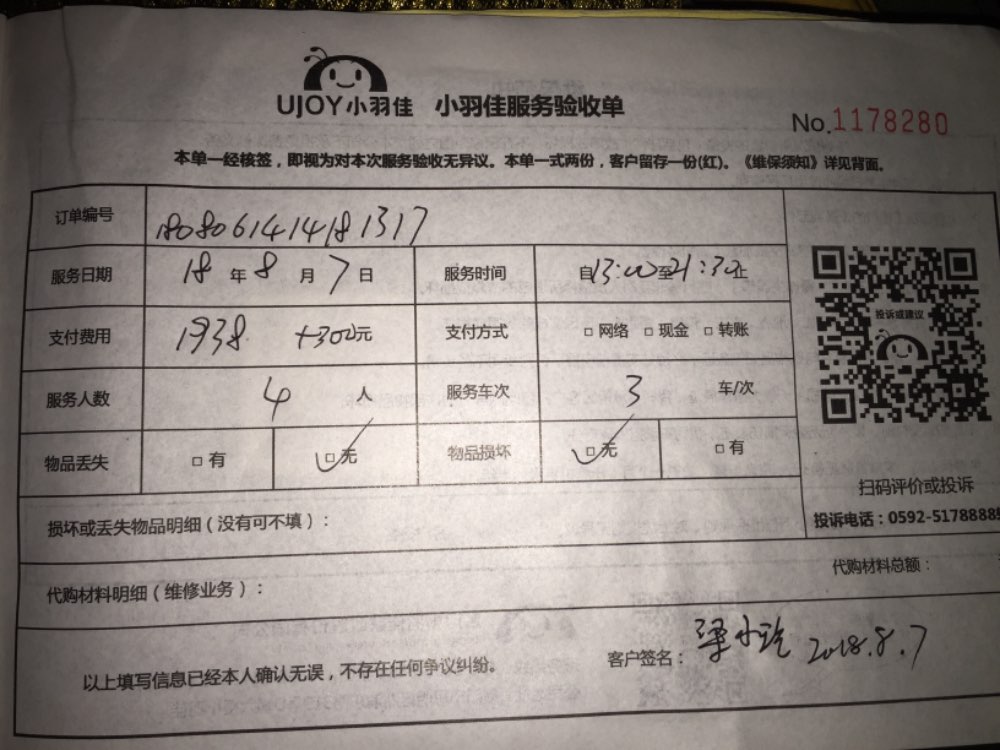 UJOY小羽佳 小羽佳服务验收单
No.1178280
本单一经核签，即视为对本次服务验收无异议。本单一式两份，客户留存一份(红)。《维保须知》详见背面。
订单编号 1808061414181317
服务日期 18年8月7日 服务时间 自13:00至21:30止
支付费用 1938 +300元 支付方式 □网络 □现金 □转账
投诉或建议
服务人数 4人 服务车次 3车/次
物品丢失 □有 □无 物品损坏 □无 □有
扫码评价或投诉
损坏或丢失物品明细（没有可不填）：
投诉电话：0592-5178888
代购材料明细（维修业务）： 代购材料总额：
以上填写信息已经本人确认无误，不存在任何争议纠纷。 客户签名： 梁小 2018.8.7